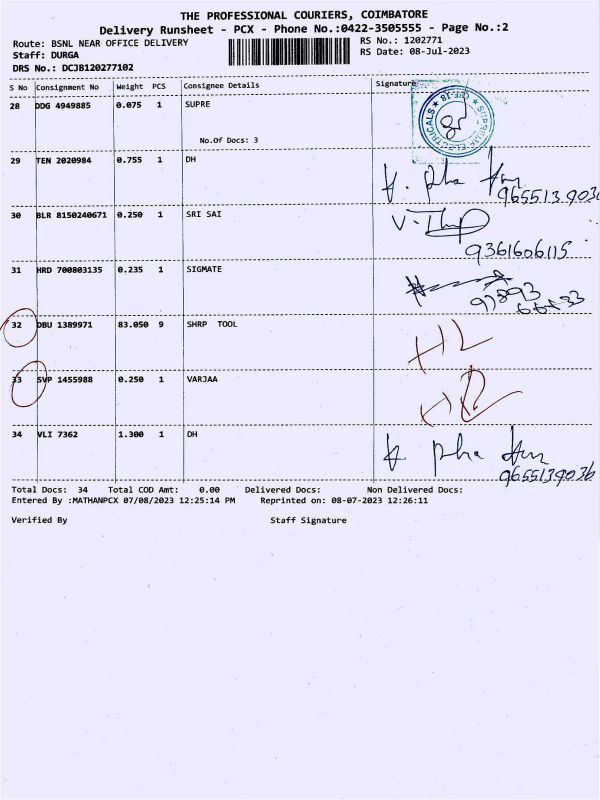 THE PROFESSIONAL COURIERS, COIMBATORE
Delivery Runsheet - PCX - Phone No.:0422-3505555 - Page No.:2
Route: BSNL NEAR OFFICE DELIVERY
RS No.: 1202771
Staff: DURGA
RS Date: 08-Jul-2023
DRS No.: DCJB120277102
S No Consignment No Weight PCS Consignee Details Signature
28 DDG 4949885 0.075 1 SUPRE
No.Of Docs: 3
29 TEN 2020984 0.755 1 DH
30 BLR 8150240671 0.250 1 SRI SAI
9361606115
31 HRD 700803135 0.235 1 SIGMATE
32 DBU 1389971 83.050 9 SHRP TOOL
33 SVP 1455988 0.250 1 VARJAA
34 VLI 7362 1.300 1 DH
9655139036
Total Docs: 34 Total COD Amt: 0.00 Delivered Docs: Non Delivered Docs:
Entered By :MATHANPCX 07/08/2023 12:25:14 PM Reprinted on: 08-07-2023 12:26:11
Verified By Staff Signature